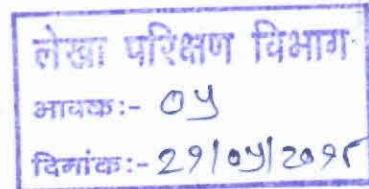 लेखा परिक्षण विभाग
आवक:- ०५
दिनांक:- २१/०५/२०१८